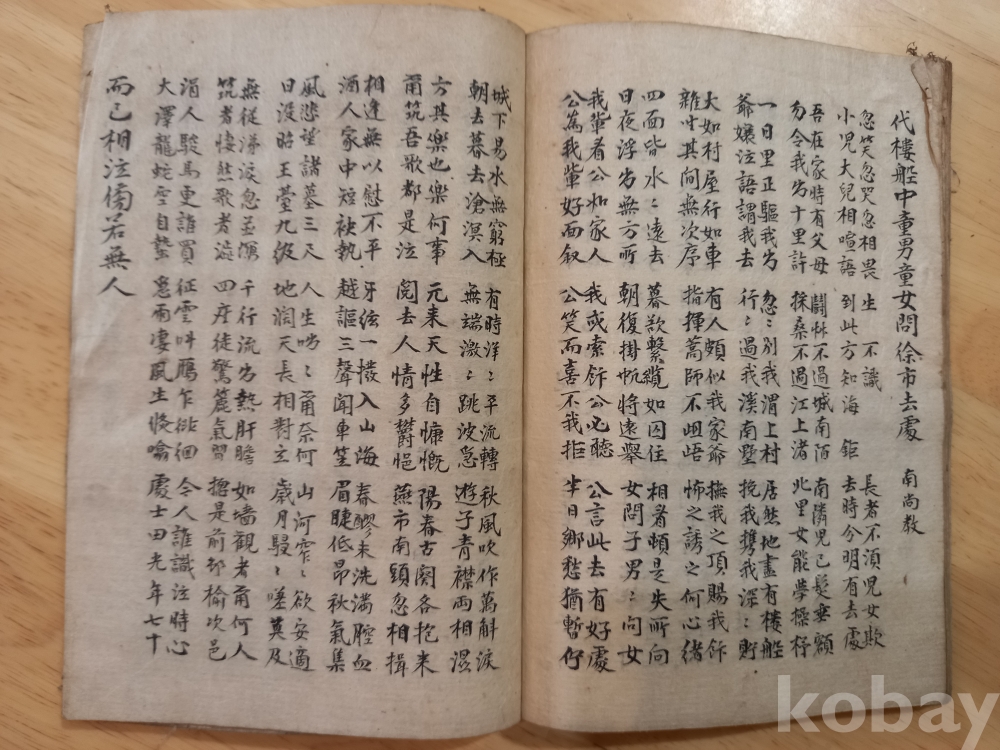 代樓船中童男童女問徐市去處 南尚教
忽笑忽哭忽相畏 生不識 長者不須兒女欺
小兒大兒相喧語 到此方知海鉅 去時今明有去處
吾在家時有父母 鬪艸不過城南陌 南隣兒已髮垂額
勿令我出十里許 採桑不過江上渚 北里女能學操杼
一日里正驅我出 忽〻別我渭上村 居然地盡有樓船
爺孃泣語謂我去 行〻過我溪南墅 挽我携我深〻貯
大如村屋行如車 有人頗似我家爺 撫我之頂賜我飣
雜其間無次序 指揮蒿師不岨峿 怖之誘之何心緒
四面皆水〻遠去 暮欲繫纜如囚住 相看頓是失所向
日夜浮出無方所 朝復掛帆將遠舉 女問子男〻問女
我輩看公如家人 我或索飣公必聽 公言此去有好處
公為我輩好面叙 公笑而喜不我拒 半日鄉愁猶暫佇
城下易水無窮極 有時洋〻平流轉 秋風吹作萬斛淚
朝去暮去滄溟入 無端激〻跳波急 遊子青襟兩相濕
方其樂也樂何事 元来天性自慷慨 陽春古閣各抱来
甭筑吾歌都是泣 閱去人情多鬱悒 燕市南頭忽相揖
相逢無以慰不平 牙絃一撥入山海 春醪未洗滿腔血
酒人家中短袂執 越謳三聲聞車笠 眉睫低昂秋氣集
風悲望諸墓三尺 人生〻甭奈何 山河窄〻欲安適
日没昭王臺九級 地濶天長相對立 歲月駸〻嗟莫及
無從涕淚忽並湧 千行流出熱肝膽 如墻觀者甭何人
筑者悽然歌者澁 四座徒驚麄氣習 摠是前部榆次邑
涓人駿馬更誰買 征雲叫鴈乍徘徊 令人誰識泣時心
大澤龍蛇空自蟄 急雨凄風生噏 處士田光年七十
而已相泣傍若無人
kobay